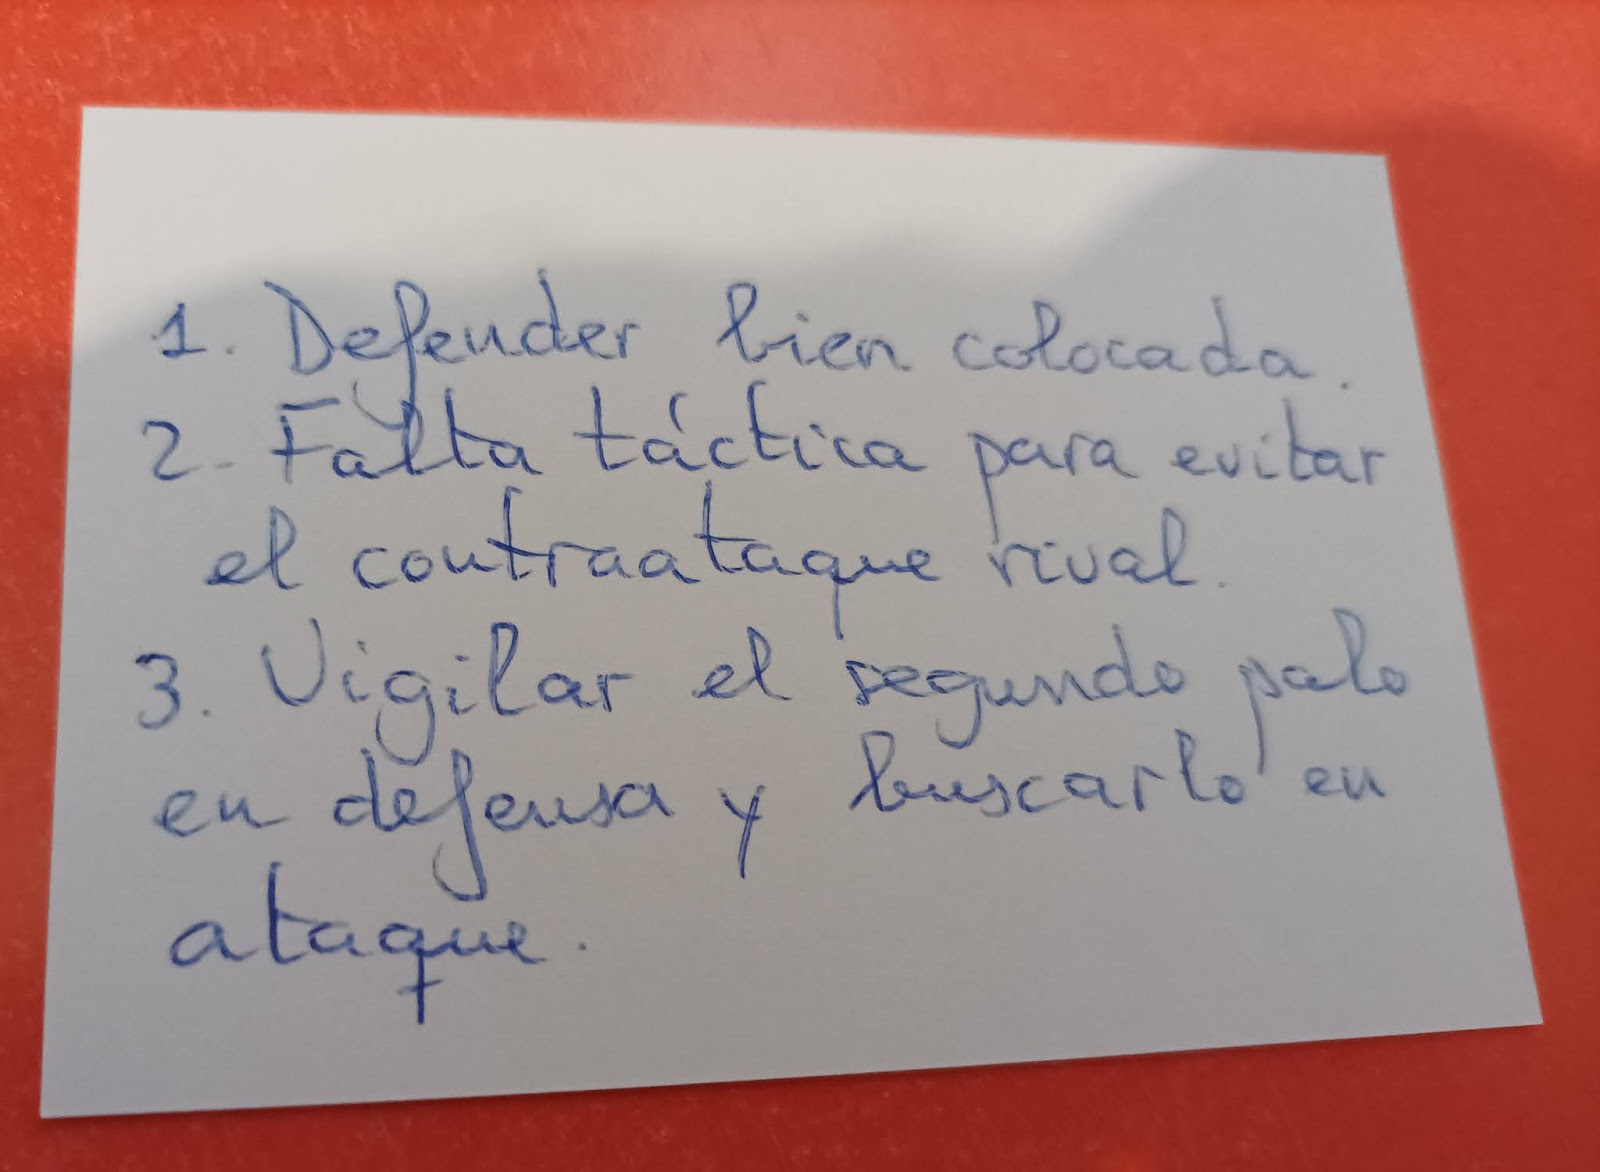 1. Defender bien colocada.
2. Falta táctica para evitar
el contraataque rival.
3. Vigilar el segundo palo
en defensa y buscarlo en
ataque.